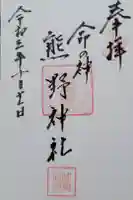 奉拝
命の神
熊野神社
令和三年十一月十三日